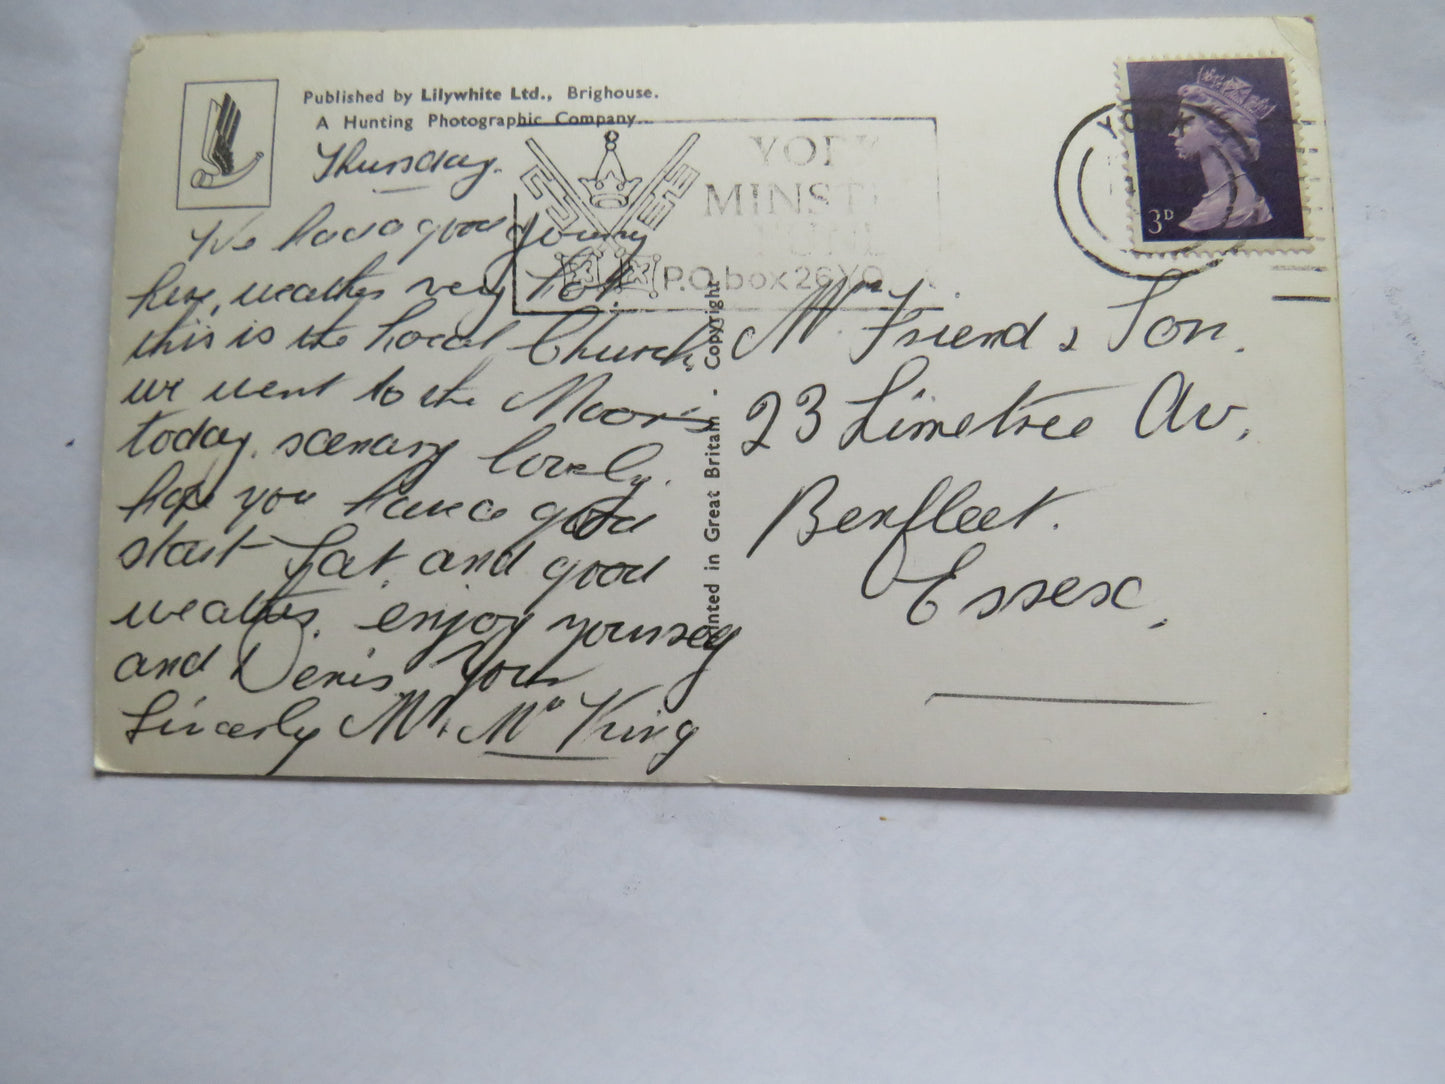 Published by Lilywhite Ltd., Brighouse.
A Hunting Photographic Company
Thursday.
We had a good journey
here, weather very hot.
this is the local Church,
we went to the Moors
today. scenary lovely.
hope you have a good
start Sat, and good
weather. enjoy yourself
and Denis Your
Sincerly Mr. Mrs King
Printed in Great Britain - Copyright
YORK
MINSTER
FUND
P.O. box 26 YO
YORK
3D
Mr Friend & Son.
23 Limetree Av.
Benfleet.
Essex.